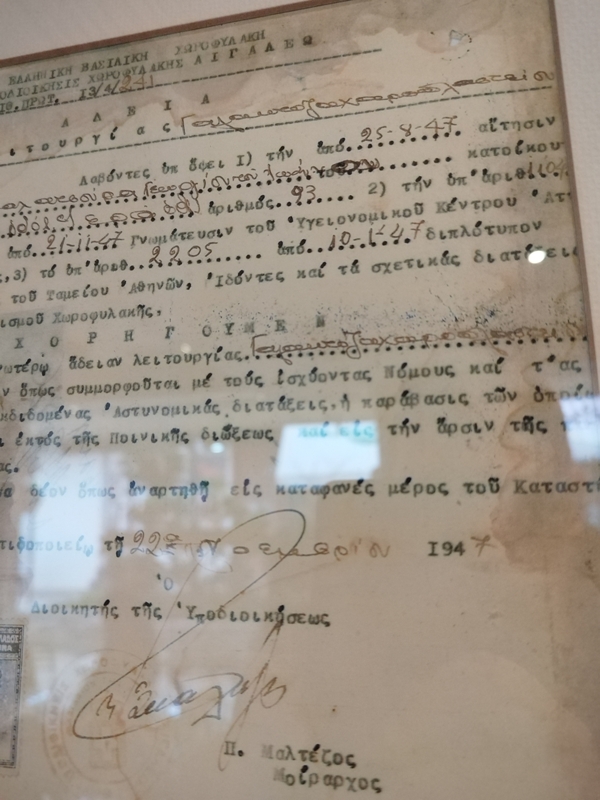 ΕΛΛΗΝΙΚΗ ΒΑΣΙΛΙΚΗ ΧΩΡΟΦΥΛΑΚΗ
ΟΔΙΟΙΚΗΣΙΣ ΧΩΡΟΦΥΛΑΚΗΣ ΑΙΓΑΛΕΩ
ΙΘ.ΠΡΩΤ. 13/4/
Α Δ Ε Ι Α
ιτουργίας Γαλακτοζαχαροπλαστείου
Λαβόντες ὑπ ὄψει 1) τήν ἀπό 25-8-47 αἴτησιν
κατοίκου
ἀριθμός 93 2) τήν ὑπ' ἀριθ
ἀπό 21-11-47 Γνωμάτευσιν τοῦ Ὑγειονομικοῦ Κέντρου Ἀττ
,3) τό ὑπ' ἀριθ. 2205 ἀπό 10-1-47 διπλότυπον
τοῦ Ταμείου Ἀθηνῶν, Ἰδόντες καί τά σχετικάς διατάξεις
ισμοῦ Χωροφυλακῆς,
Χ Ο Ρ Η Γ Ο Υ Μ Ε Ν
νωτέρῳ ἄδειαν λειτουργίας Γαλακτοζαχαροπλαστείου
ν ὅπως συμμορφοῦται μέ τούς ἰσχύοντας Νόμους καί τ'ας
κδιδομένας Ἀστυνομικάς διατάξεις,ἡ παράβασις τῶν ὁποίων
ι ἐκτός τῆς Ποινικῆς διώξεως καί εἰς τήν ἄρσιν τῆς
ας.
α δέον ὅπως ἀναρτηθῇ εἰς καταφανές μέρος τοῦ Καταστή
τῇ 22α Νοεμβρίου 1947
Ὁ
Διοικητής τῆς Ὑποδιοικήσεως
Π. Μαλτέζος
Μοίραρχος